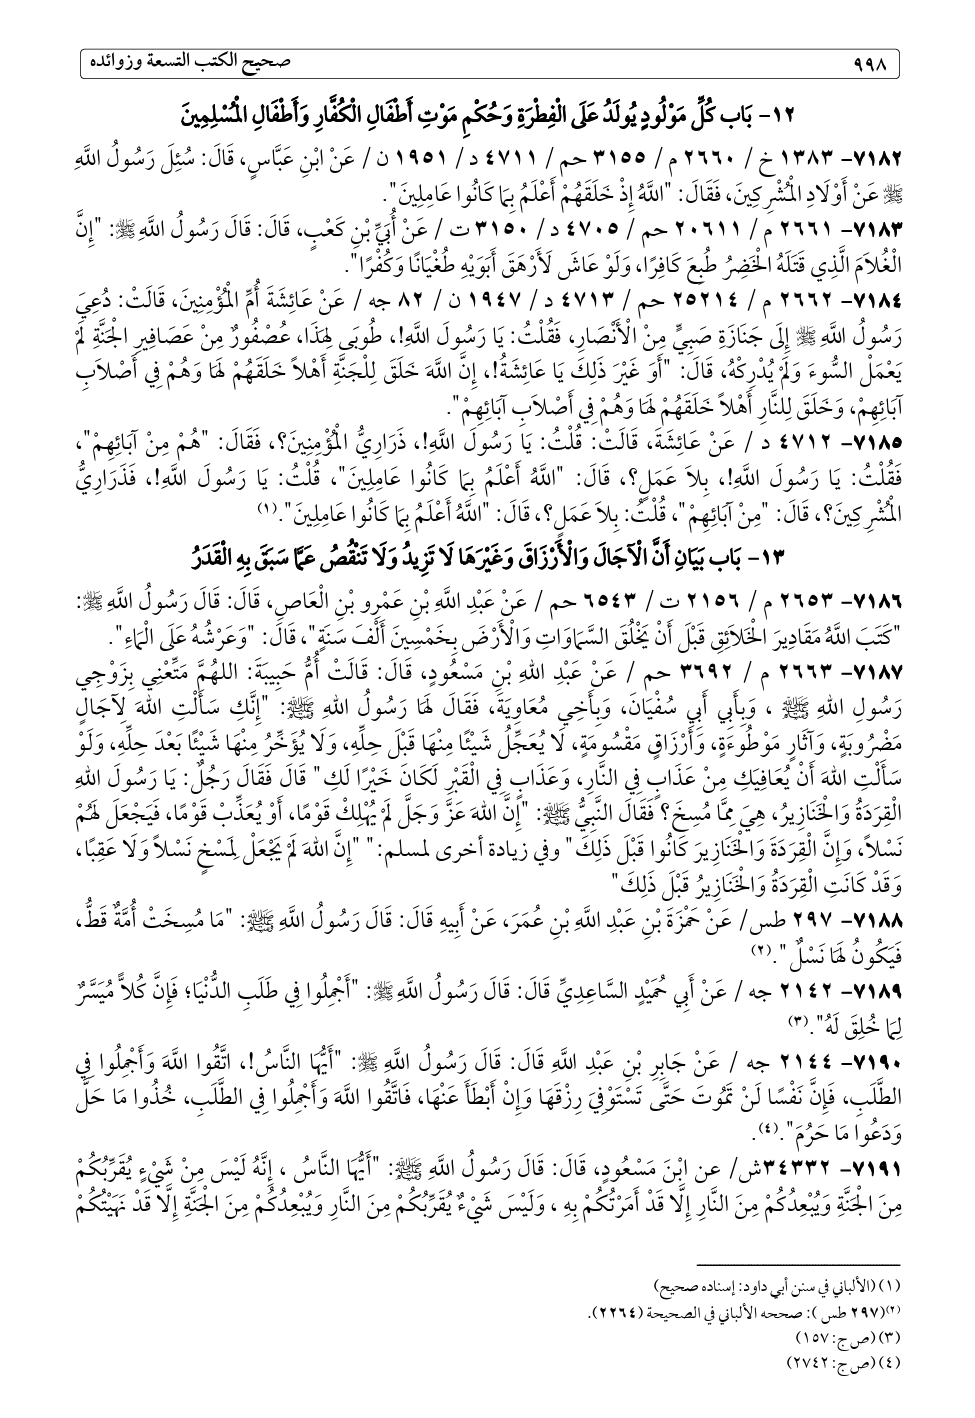 ٩٩٨ صحيح الكتب التسعة وزوائده
١٢- بَاب كُلُّ مَوْلُودٍ يُولَدُ عَلَى الْفِطْرَةِ وَحُكْمِ مَوْتِ أَطْفَالِ الْكُفَّارِ وَأَطْفَالِ الْمُسْلِمِينَ
٧١٨٢- ١٣٨٣ خ / ٢٦٦٠ م/ ٣١٥٥ حم/ ٤٧١١ د/ ١٩٥١ ن / عَنْ ابْنِ عَبَّاسٍ، قَالَ: سُئِلَ رَسُولُ اللَّهِ
ﷺ عَنْ أَوْلَادِ الْمُشْرِكِينَ، فَقَالَ: "اللَّهُ إِذْ خَلَقَهُمْ أَعْلَمُ بِمَا كَانُوا عَامِلِينَ".
٧١٨٣- ٢٦٦١ م/ ٢٠٦١١ حم/ ٤٧٠٥ د/ ٣١٥٠ ت / عَنْ أُبَيِّ بْنِ كَعْبٍ، قَالَ: قَالَ رَسُولُ اللَّهِ ﷺ: "إِنَّ
الْغُلَامَ الَّذِي قَتَلَهُ الْخَضِرُ طُبِعَ كَافِرًا، وَلَوْ عَاشَ لَأَرْهَقَ أَبَوَيْهِ طُغْيَانًا وَكُفْرًا".
٧١٨٤- ٢٦٦٢ م/ ٢٥٢١٤ حم/ ٤٧١٣ د/ ١٩٤٧ ن / ٨٢ جه / عَنْ عَائِشَةَ أُمِّ الْمُؤْمِنِينَ، قَالَتْ: دُعِيَ
رَسُولُ اللَّهِ ﷺ إِلَى جَنَازَةِ صَبِيٍّ مِنْ الْأَنْصَارِ، فَقُلْتُ: يَا رَسُولَ اللَّهِ!، طُوبَى لِهَذَا، عُصْفُورٌ مِنْ عَصَافِيرِ الْجَنَّةِ لَمْ
يَعْمَلِ السُّوءَ وَلَمْ يُدْرِكْهُ، قَالَ: "أَوَ غَيْرَ ذَلِكَ يَا عَائِشَةُ!، إِنَّ اللَّهَ خَلَقَ لِلْجَنَّةِ أَهْلاً خَلَقَهُمْ لَهَا وَهُمْ فِي أَصْلَابِ
آبَائِهِمْ، وَخَلَقَ لِلنَّارِ أَهْلاً خَلَقَهُمْ لَهَا وَهُمْ فِي أَصْلَابِ آبَائِهِمْ".
٧١٨٥- ٤٧١٢ د / عَنْ عَائِشَةَ، قَالَتْ: قُلْتُ: يَا رَسُولَ اللَّهِ!، ذَرَارِيُّ الْمُؤْمِنِينَ؟، فَقَالَ: "هُمْ مِنْ آبَائِهِمْ"،
فَقُلْتُ: يَا رَسُولَ اللَّهِ!، بِلاَ عَمَلٍ؟، قَالَ: "اللَّهُ أَعْلَمُ بِمَا كَانُوا عَامِلِينَ"، قُلْتُ: يَا رَسُولَ اللَّهِ!، فَذَرَارِيُّ
الْمُشْرِكِينَ؟، قَالَ: "مِنْ آبَائِهِمْ"، قُلْتُ: بِلاَ عَمَلٍ؟، قَالَ: "اللَّهُ أَعْلَمُ بِمَا كَانُوا عَامِلِينَ".(١)
١٣- بَاب بَيَانِ أَنَّ الْآجَالَ وَالْأَرْزَاقَ وَغَيْرَهَا لَا تَزِيدُ وَلَا تَنْقُصُ عَمَّا سَبَقَ بِهِ الْقَدَرُ
٧١٨٦- ٢٦٥٣ م/ ٢١٥٦ ت/ ٦٥٤٣ حم / عَنْ عَبْدِ اللَّهِ بْنِ عَمْرِو بْنِ الْعَاصِ، قَالَ: قَالَ رَسُولُ اللَّهِ ﷺ:
"كَتَبَ اللَّهُ مَقَادِيرَ الْخَلَائِقِ قَبْلَ أَنْ يَخْلُقَ السَّمَاوَاتِ وَالْأَرْضَ بِخَمْسِينَ أَلْفَ سَنَةٍ"، قَالَ: "وَعَرْشُهُ عَلَى الْمَاءِ".
٧١٨٧- ٢٦٦٣ م / ٣٦٩٢ حم / عَنْ عَبْدِ اللهِ بْنِ مَسْعُودٍ، قَالَ: قَالَتْ أُمُّ حَبِيبَةَ: اللهُمَّ مَتِّعْنِي بِزَوْجِي
رَسُولِ اللهِ ﷺ ، وَبِأَبِي أَبِي سُفْيَانَ، وَبِأَخِي مُعَاوِيَةَ، فَقَالَ لَهَا رَسُولُ اللهِ ﷺ: "إِنَّكِ سَأَلْتِ اللهَ لآجَالٍ
مَضْرُوبَةٍ، وَآثَارٍ مَوْطُوءَةٍ، وَأَرْزَاقٍ مَقْسُومَةٍ، لَا يُعَجِّلُ شَيْئًا مِنْهَا قَبْلَ حِلِّهِ، وَلَا يُؤَخِّرُ مِنْهَا شَيْئًا بَعْدَ حِلِّهِ، وَلَوْ
سَأَلْتِ اللهَ أَنْ يُعَافِيَكِ مِنْ عَذَابٍ فِي النَّارِ، وَعَذَابٍ فِي الْقَبْرِ لَكَانَ خَيْرًا لَكِ" قَالَ فَقَالَ رَجُلٌ: يَا رَسُولَ اللهِ
الْقِرَدَةُ وَالْخَنَازِيرُ، هِيَ مِمَّا مُسِخَ؟ فَقَالَ النَّبِيُّ ﷺ: "إِنَّ اللهَ عَزَّ وَجَلَّ لَمْ يُهْلِكْ قَوْمًا، أَوْ يُعَذِّبْ قَوْمًا، فَيَجْعَلَ لَهُمْ
نَسْلاً، وَإِنَّ الْقِرَدَةَ وَالْخَنَازِيرَ كَانُوا قَبْلَ ذَلِكَ" وفي زيادة أخرى لمسلم: " "إِنَّ اللهَ لَمْ يَجْعَلْ لِمَسْخٍ نَسْلاً وَلَا عَقِبًا،
وَقَدْ كَانَتِ الْقِرَدَةُ وَالْخَنَازِيرُ قَبْلَ ذَلِكَ"
٧١٨٨- ٢٩٧ طس/ عَنْ حَمْزَةَ بْنِ عَبْدِ اللَّهِ بْنِ عُمَرَ، عَنْ أَبِيهِ قَالَ: قَالَ رَسُولُ اللَّهِ ﷺ: "مَا مُسِخَتْ أُمَّةٌ قَطُّ،
فَيَكُونُ لَهَا نَسْلٌ ".(٢)
٧١٨٩- ٢١٤٢ جه / عَنْ أَبِي حُمَيْدٍ السَّاعِدِيِّ قَالَ: قَالَ رَسُولُ اللَّهِ ﷺ: "أَجْمِلُوا فِي طَلَبِ الدُّنْيَا؛ فَإِنَّ كُلاًّ مُيَسَّرٌ
لِمَا خُلِقَ لَهُ".(٣)
٧١٩٠- ٢١٤٤ جه / عَنْ جَابِرِ بْنِ عَبْدِ اللَّهِ قَالَ: قَالَ رَسُولُ اللَّهِ ﷺ: "أَيُّهَا النَّاسُ!، اتَّقُوا اللَّهَ وَأَجْمِلُوا فِي
الطَّلَبِ، فَإِنَّ نَفْسًا لَنْ تَمُوتَ حَتَّى تَسْتَوْفِيَ رِزْقَهَا وَإِنْ أَبْطَأَ عَنْهَا، فَاتَّقُوا اللَّهَ وَأَجْمِلُوا فِي الطَّلَبِ، خُذُوا مَا حَلَّ
وَدَعُوا مَا حَرُمَ".(٤).
٧١٩١- ٣٤٣٣٢ش/ عن ابْنَ مَسْعُودٍ، قَالَ: قَالَ رَسُولُ اللَّهِ ﷺ: "أَيُّهَا النَّاسُ ، إِنَّهُ لَيْسَ مِنْ شَيْءٍ يُقَرِّبُكُمْ
مِنَ الْجَنَّةِ وَيُبْعِدُكُمْ مِنَ النَّارِ إِلَّا قَدْ أَمَرْتُكُمْ بِهِ ، وَلَيْسَ شَيْءٌ يُقَرِّبُكُمْ مِنَ النَّارِ وَيُبْعِدُكُمْ مِنَ الْجَنَّةِ إِلَّا قَدْ نَهَيْتُكُمْ
(١) (الألباني في سنن أبي داود: إسناده صحيح)
(٢)(٢٩٧ طس ): صححه الألباني في الصحيحة (٢٢٦٤).
(٣) (ص ج: ١٥٧)
(٤) (ص ج: ٢٧٤٢)